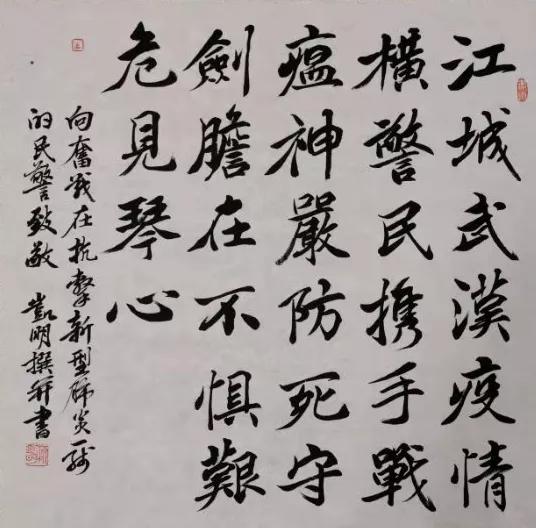 江城武漢疫情
橫警民携手戰
瘟神嚴防死守
劍膽在不惧艱
危見琴心
向奮戰在抗擊新型肺炎一线
的民警致敬 凱明撰并書